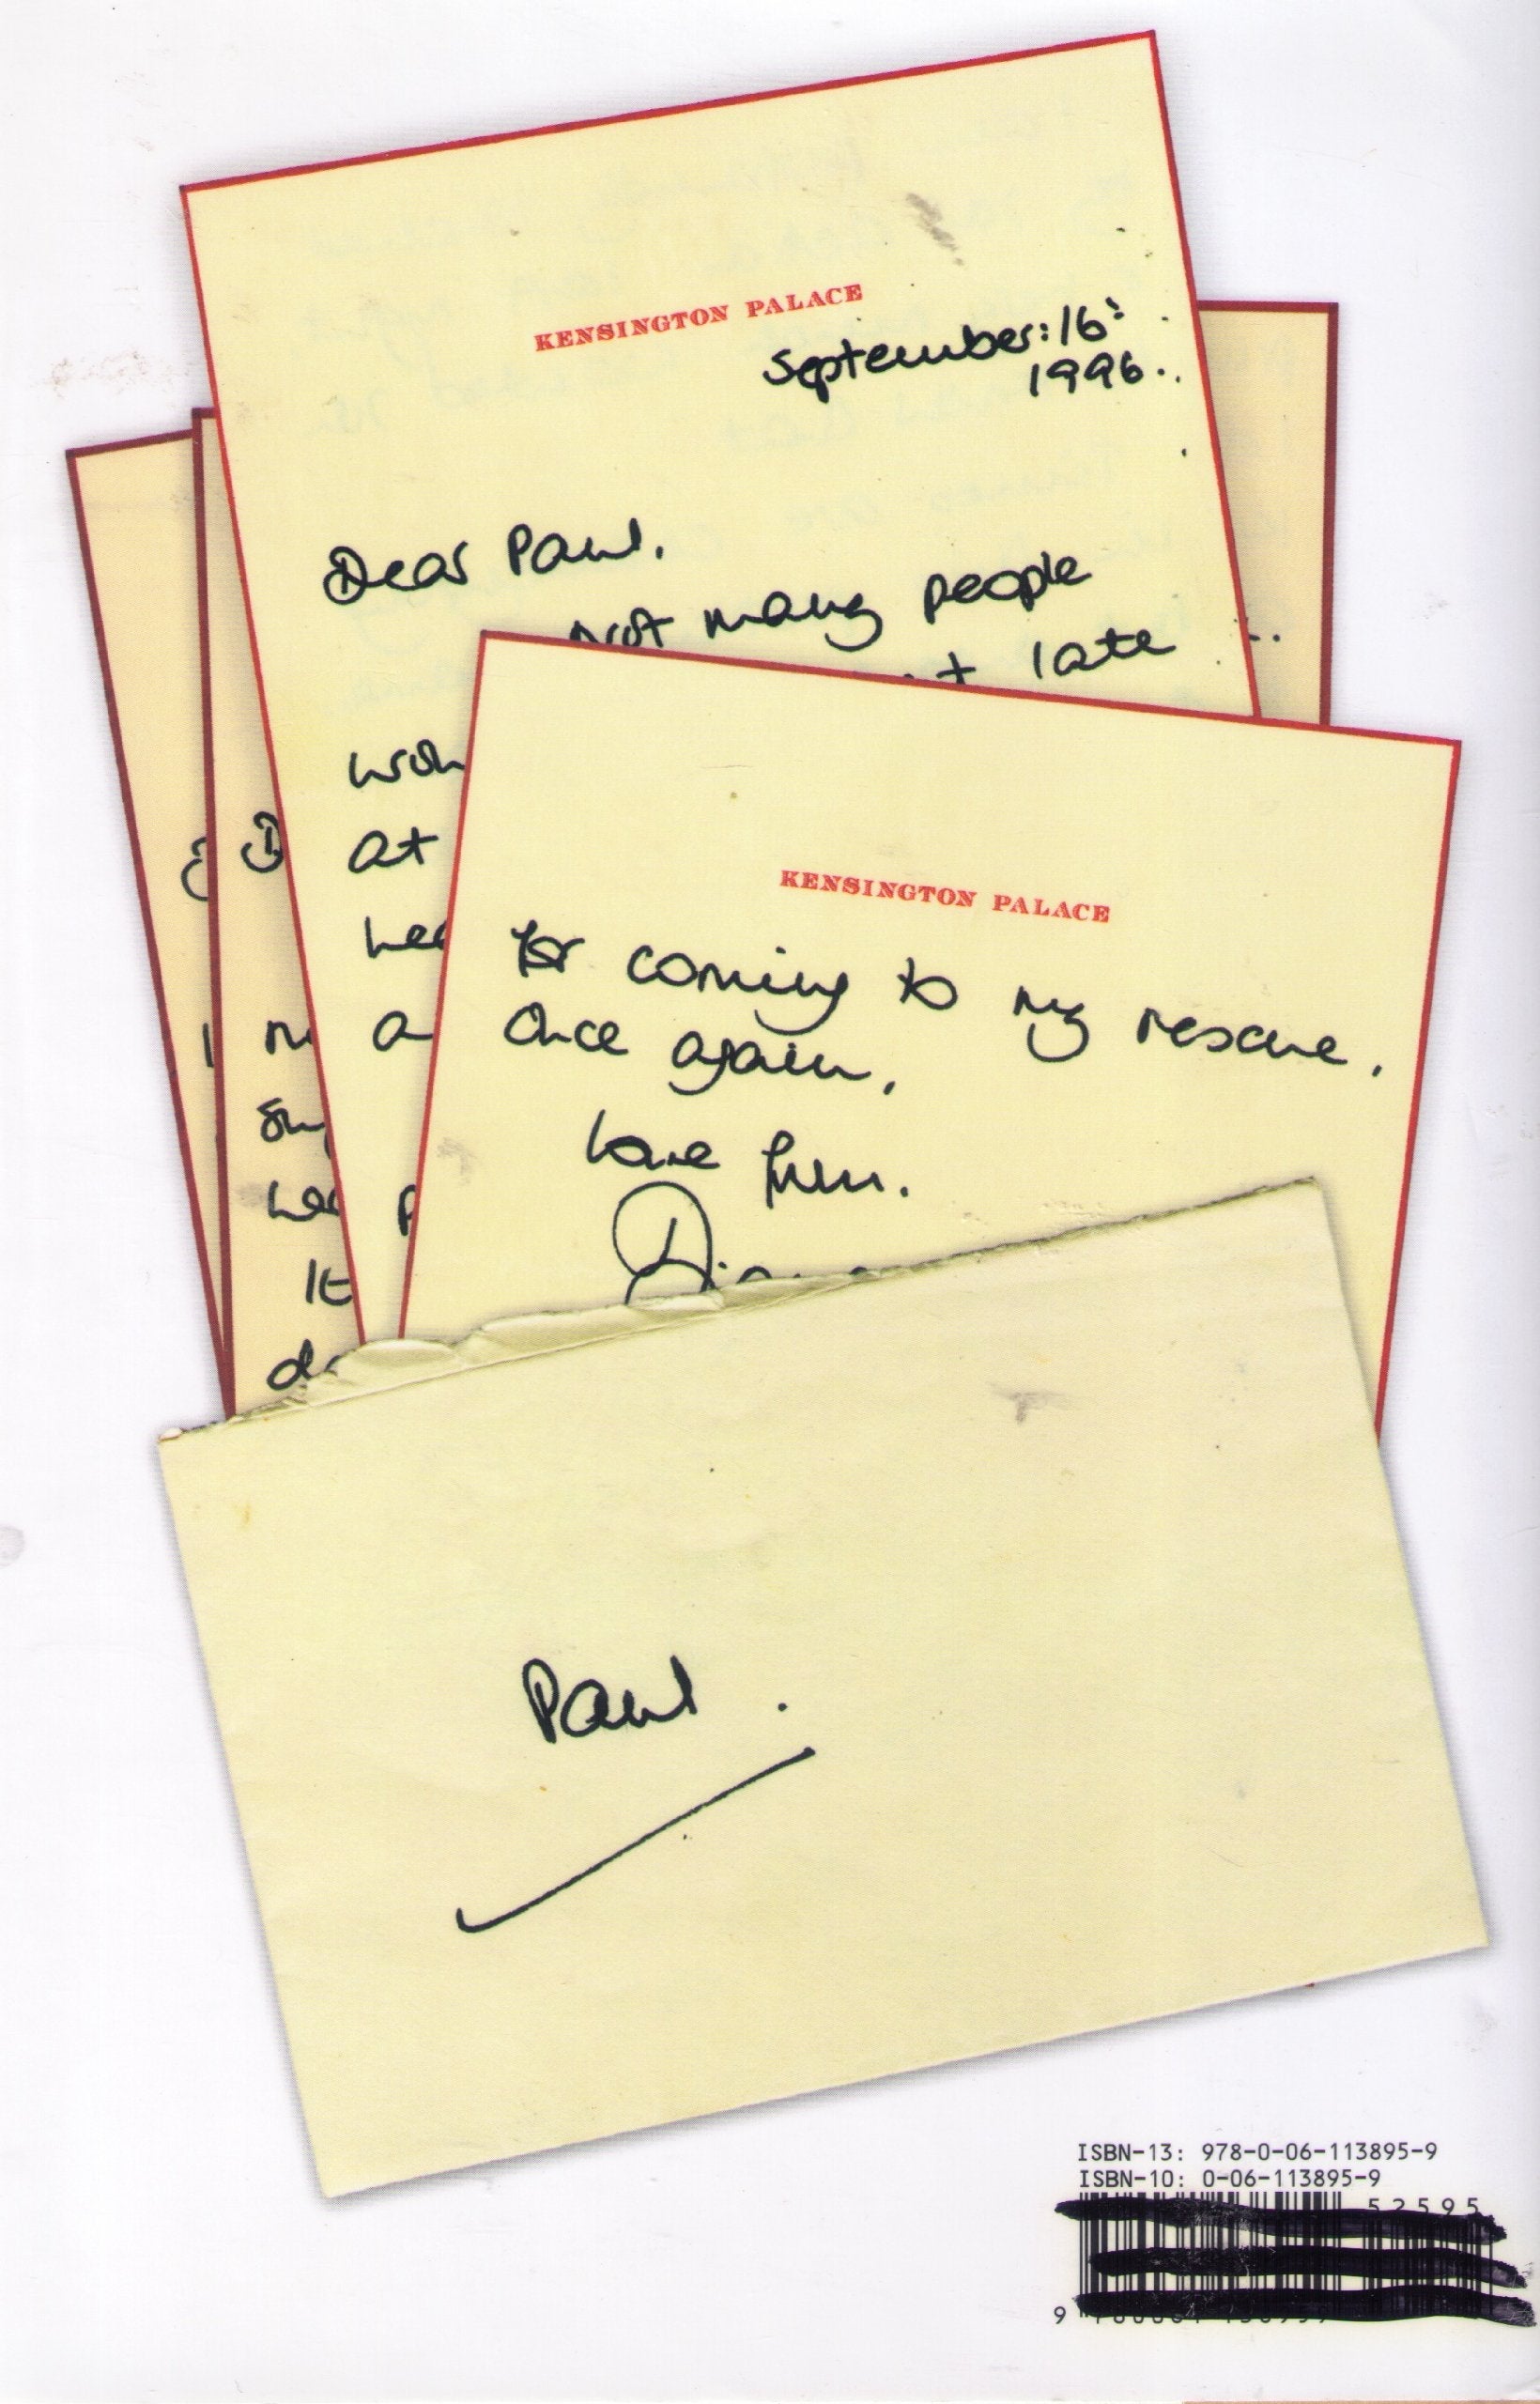 KENSINGTON PALACE
September: 16:
1996.
Dear Paul.
not many people
late
at
a
KENSINGTON PALACE
for coming to my rescue,
once again,
love from.
Diana
Paul.
ISBN-13: 978-0-06-113895-9
ISBN-10: 0-06-113895-9
52595
9